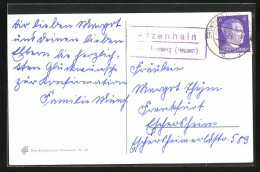 Dir lieben Margot
und deinen lieben
Eltern die herzlich-
sten Glückwünsche
zur Konfirmation
Familie Münch
Atzenhain
Fräulein
Margot
Frankfurt
Eschersheim
Eschersheimerldstr. 589